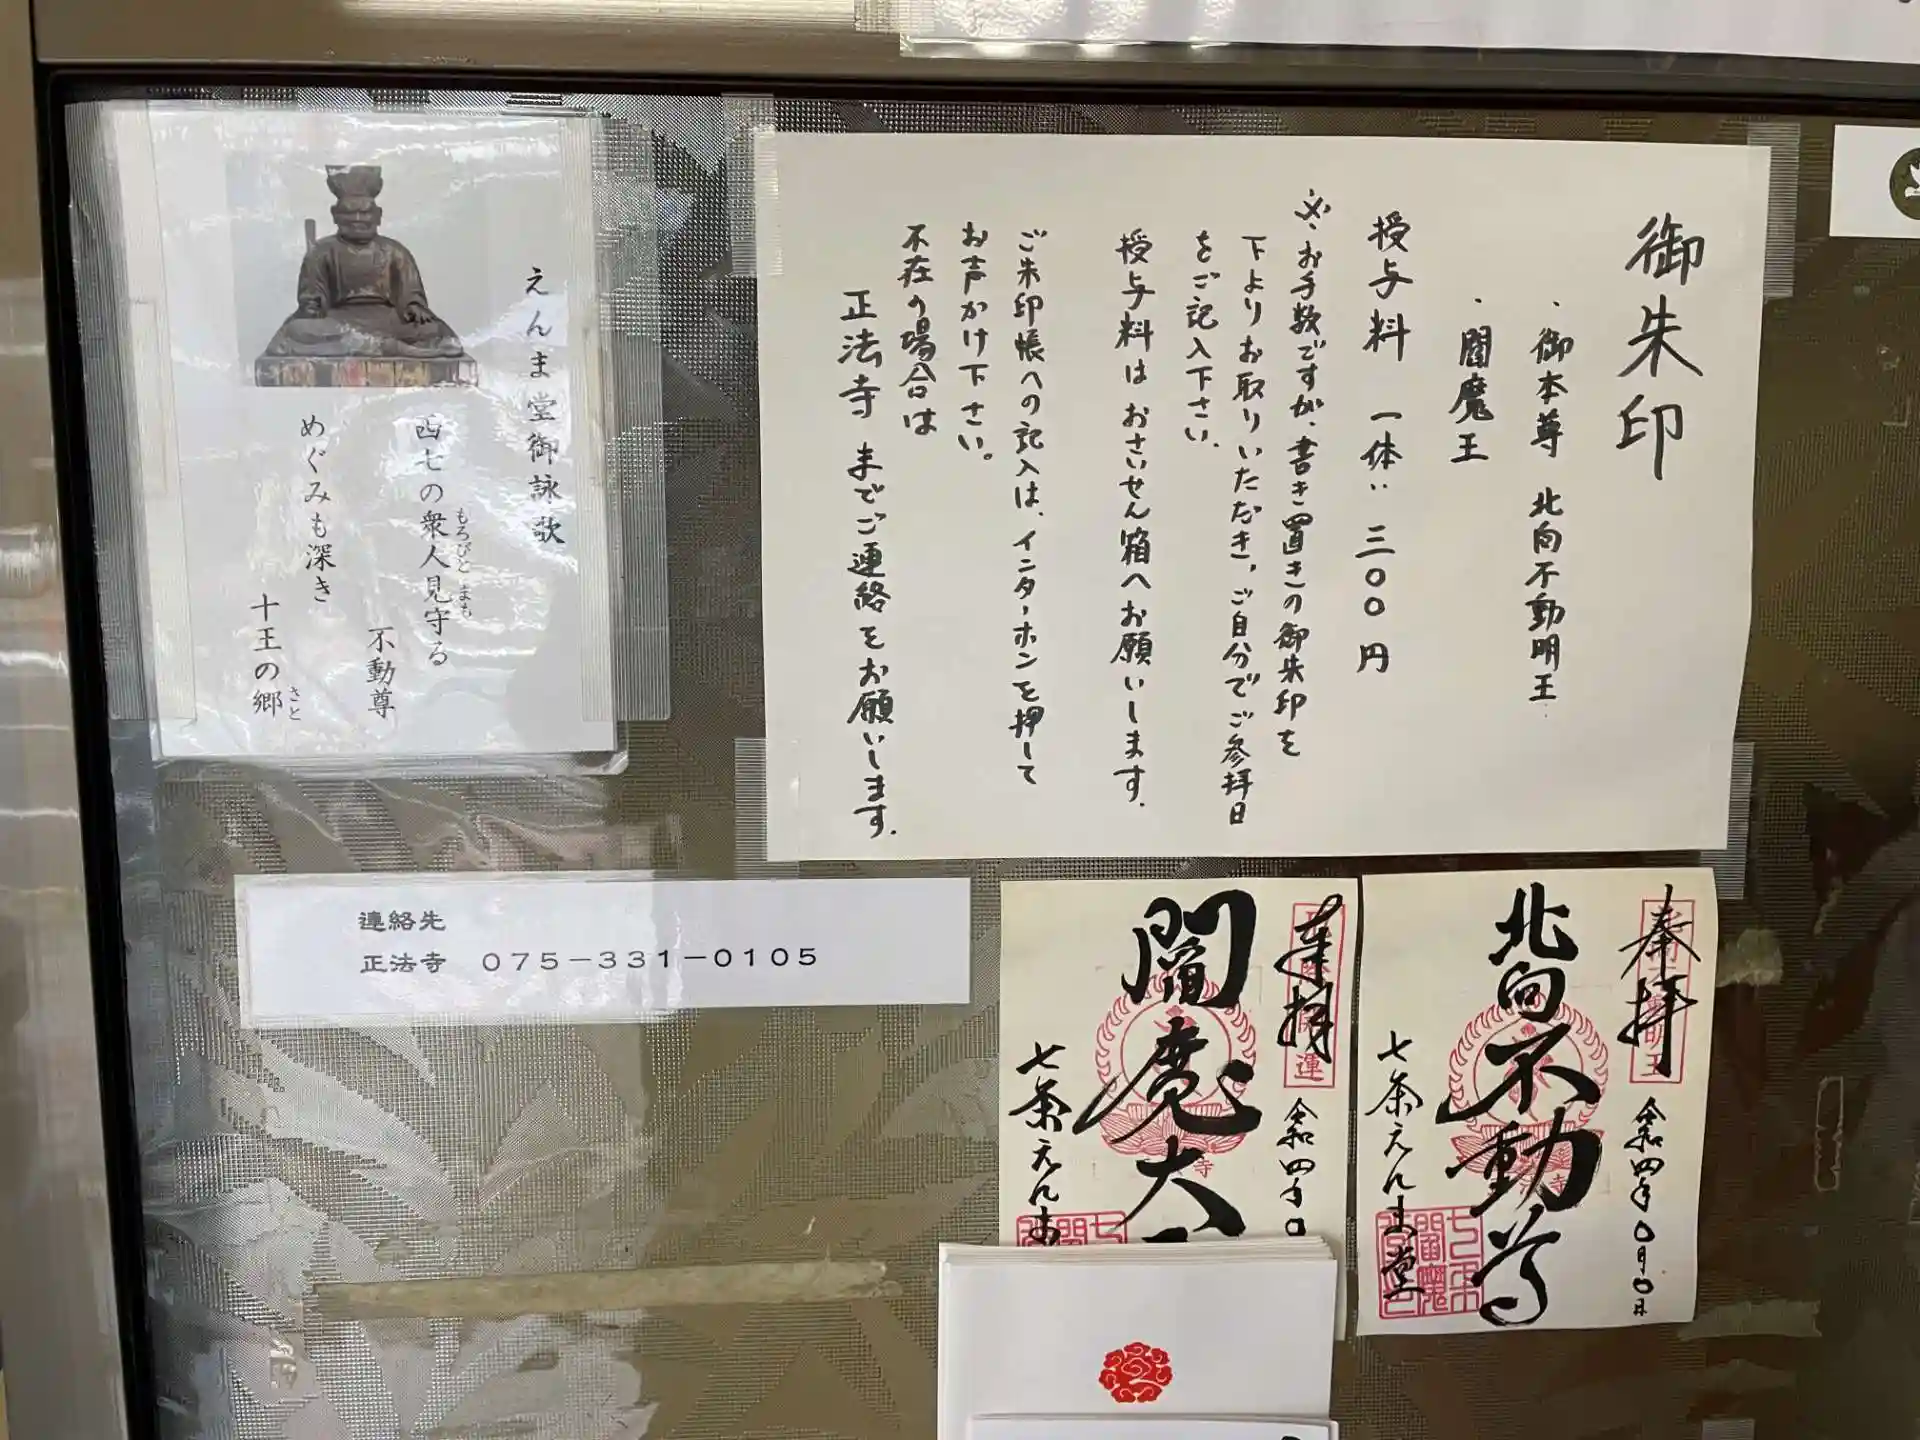 御朱印
・御本尊 北向不動明王
・閻魔王
授与料 一体 三〇〇円
※お手数ですが、書き置きの御朱印を
下よりお取りいただき、ご自分でご参拝日
をご記入下さい。
授与料は おさいせん箱へお願いします。
ご朱印帳への記入は、インターホンを押して
お声かけ下さい。
不在の場合は
正法寺 までご連絡をお願いします。
えんま堂御詠歌
西七の衆人見守る
もろびと まも
不動尊
めぐみも深き
十王の郷
さと
連絡先
正法寺 075-331-0105
奉拝
令和四年〇月〇日
北向不動尊
七条えんま堂
奉拝
令和四年〇
閻魔大
七条えんま